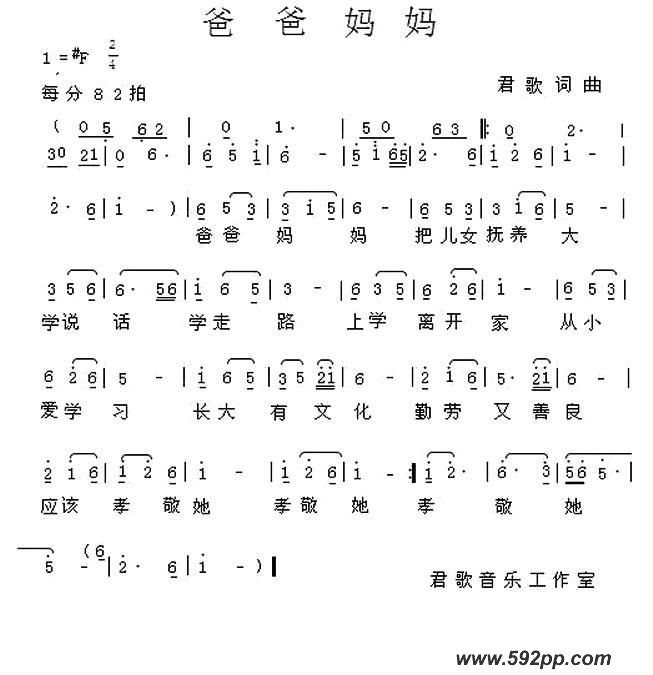 爸爸妈妈
1=#F 2/4
每分82拍
君歌词曲
( 0 5 6 2 | 0 1· | 5 0 6 3 |: 0 2· |
30 21 | 0 6· | 6 5 i | 6 - | 5 i 65 | 2· 6 | i 2 6 | i - |
2· 6 | i - ) | 6 5 3 | 3 i 5 | 6 - | 6 5 3 | 3 i 6 | 5 - |
爸爸 妈 妈 把儿女抚养 大
3 5 6 | 6· 56 | i 6 5 | 3 - | 6 3 5 | 6 2 6 | i - | 6 5 3 |
学说 话 学走 路 上学 离开 家 从小
6 2 6 | 5 - | i 6 5 | 3 5 2i | 6 - | 2 i 6 | 5· 2i | 6 - |
爱学 习 长大 有 文 化 勤劳 又善良
2 i 6 | i 2 6 | i - | i 2 6 | i - :| i 2· | 6· 3 | 56 5· |
应该 孝 敬她 孝敬 她 孝 敬 她
5 - (6 | 2· 6 | i - ) |
君歌音乐工作室
www.592pp.com